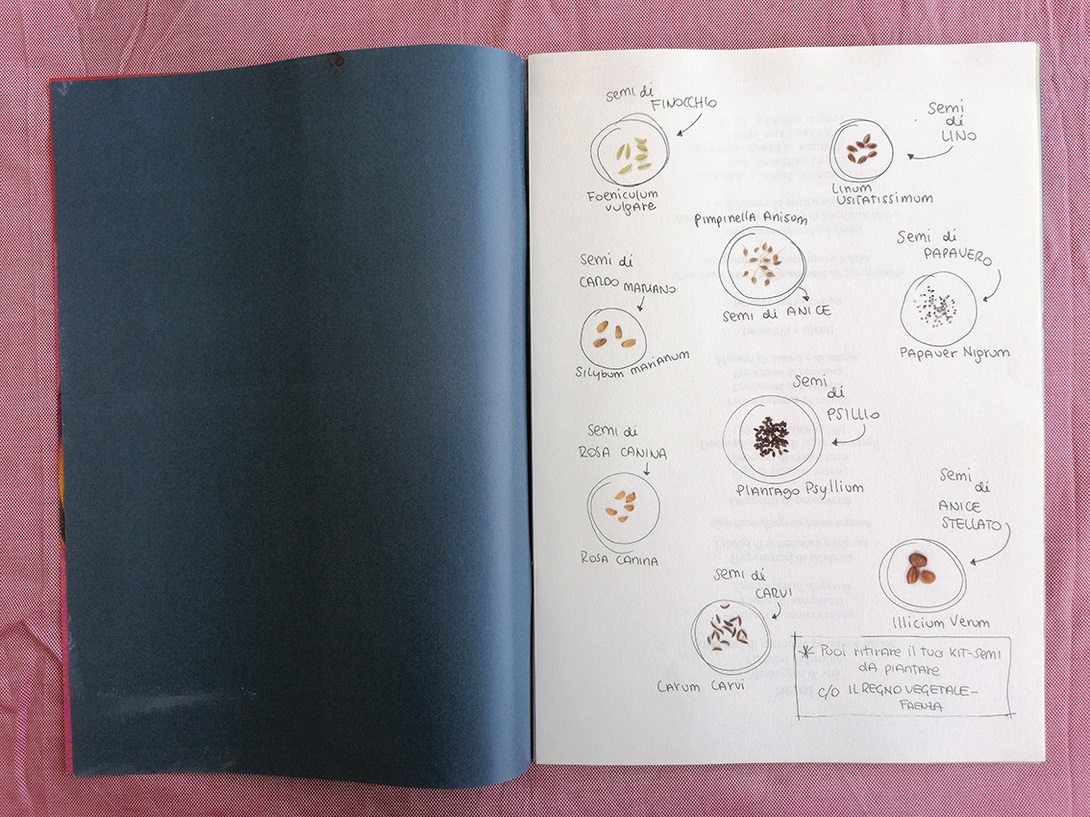 semi di
FINOCCHIO
Foeniculum
vulgare
Semi
di
LINO
Linum
Usitatissimum
Pimpinella Anisum
semi di ANICE
Semi di
PAPAVERO
Papaver Nigrum
semi di
CARDO MARIANO
Silybum marianum
semi
di
PSILLIO
Plantago Psyllium
semi di
ROSA CANINA
ROSA CANINA
semi
di
ANICE
STELLATO
Illicium Verum
semi di
CARVI
Carum Carvi
* Puoi ritirare il tuo KIT-SEMI
DA PIANTARE
c/o IL REGNO VEGETALE-
FAENZA